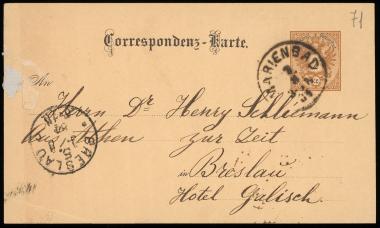 71
Correspondenz-Karte.
MARIENBAD
An
Herrn Dr Henry Schliemann
aus Athen zur Zeit
in Breslau
Hotel Galisch.
BRESLAU